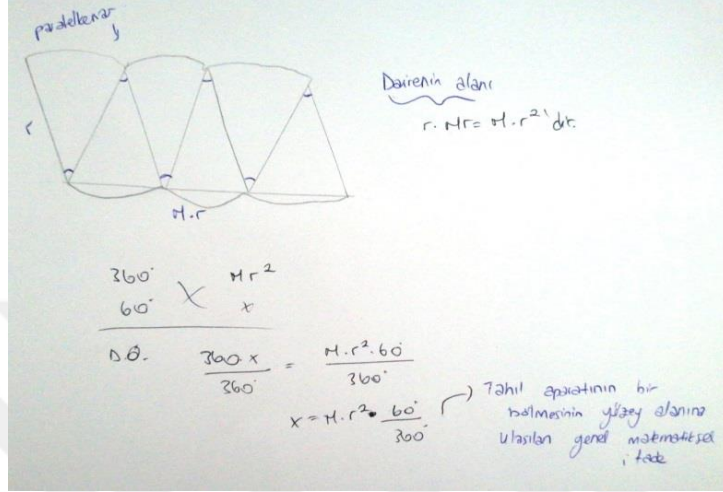 paralelkenar
r
M.r
Dairenin alanı
r. Mr = M.r²'dir.
360° Mr²
60° x
D.O. 360.x / 360° = M.r².60° / 360°
x = M.r². 60° / 360°
Tahıl aparatının bir
bölmesinin yüzey alanına
ulaşılan genel matematiksel
ifade